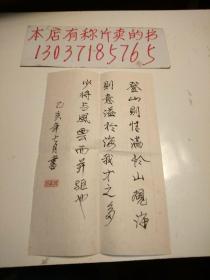 本店有称斤卖的书
13037185765
登山则情满於山觀海
则意溢於海我才之多
少将与風雲而并驱也
乙亥年十月書